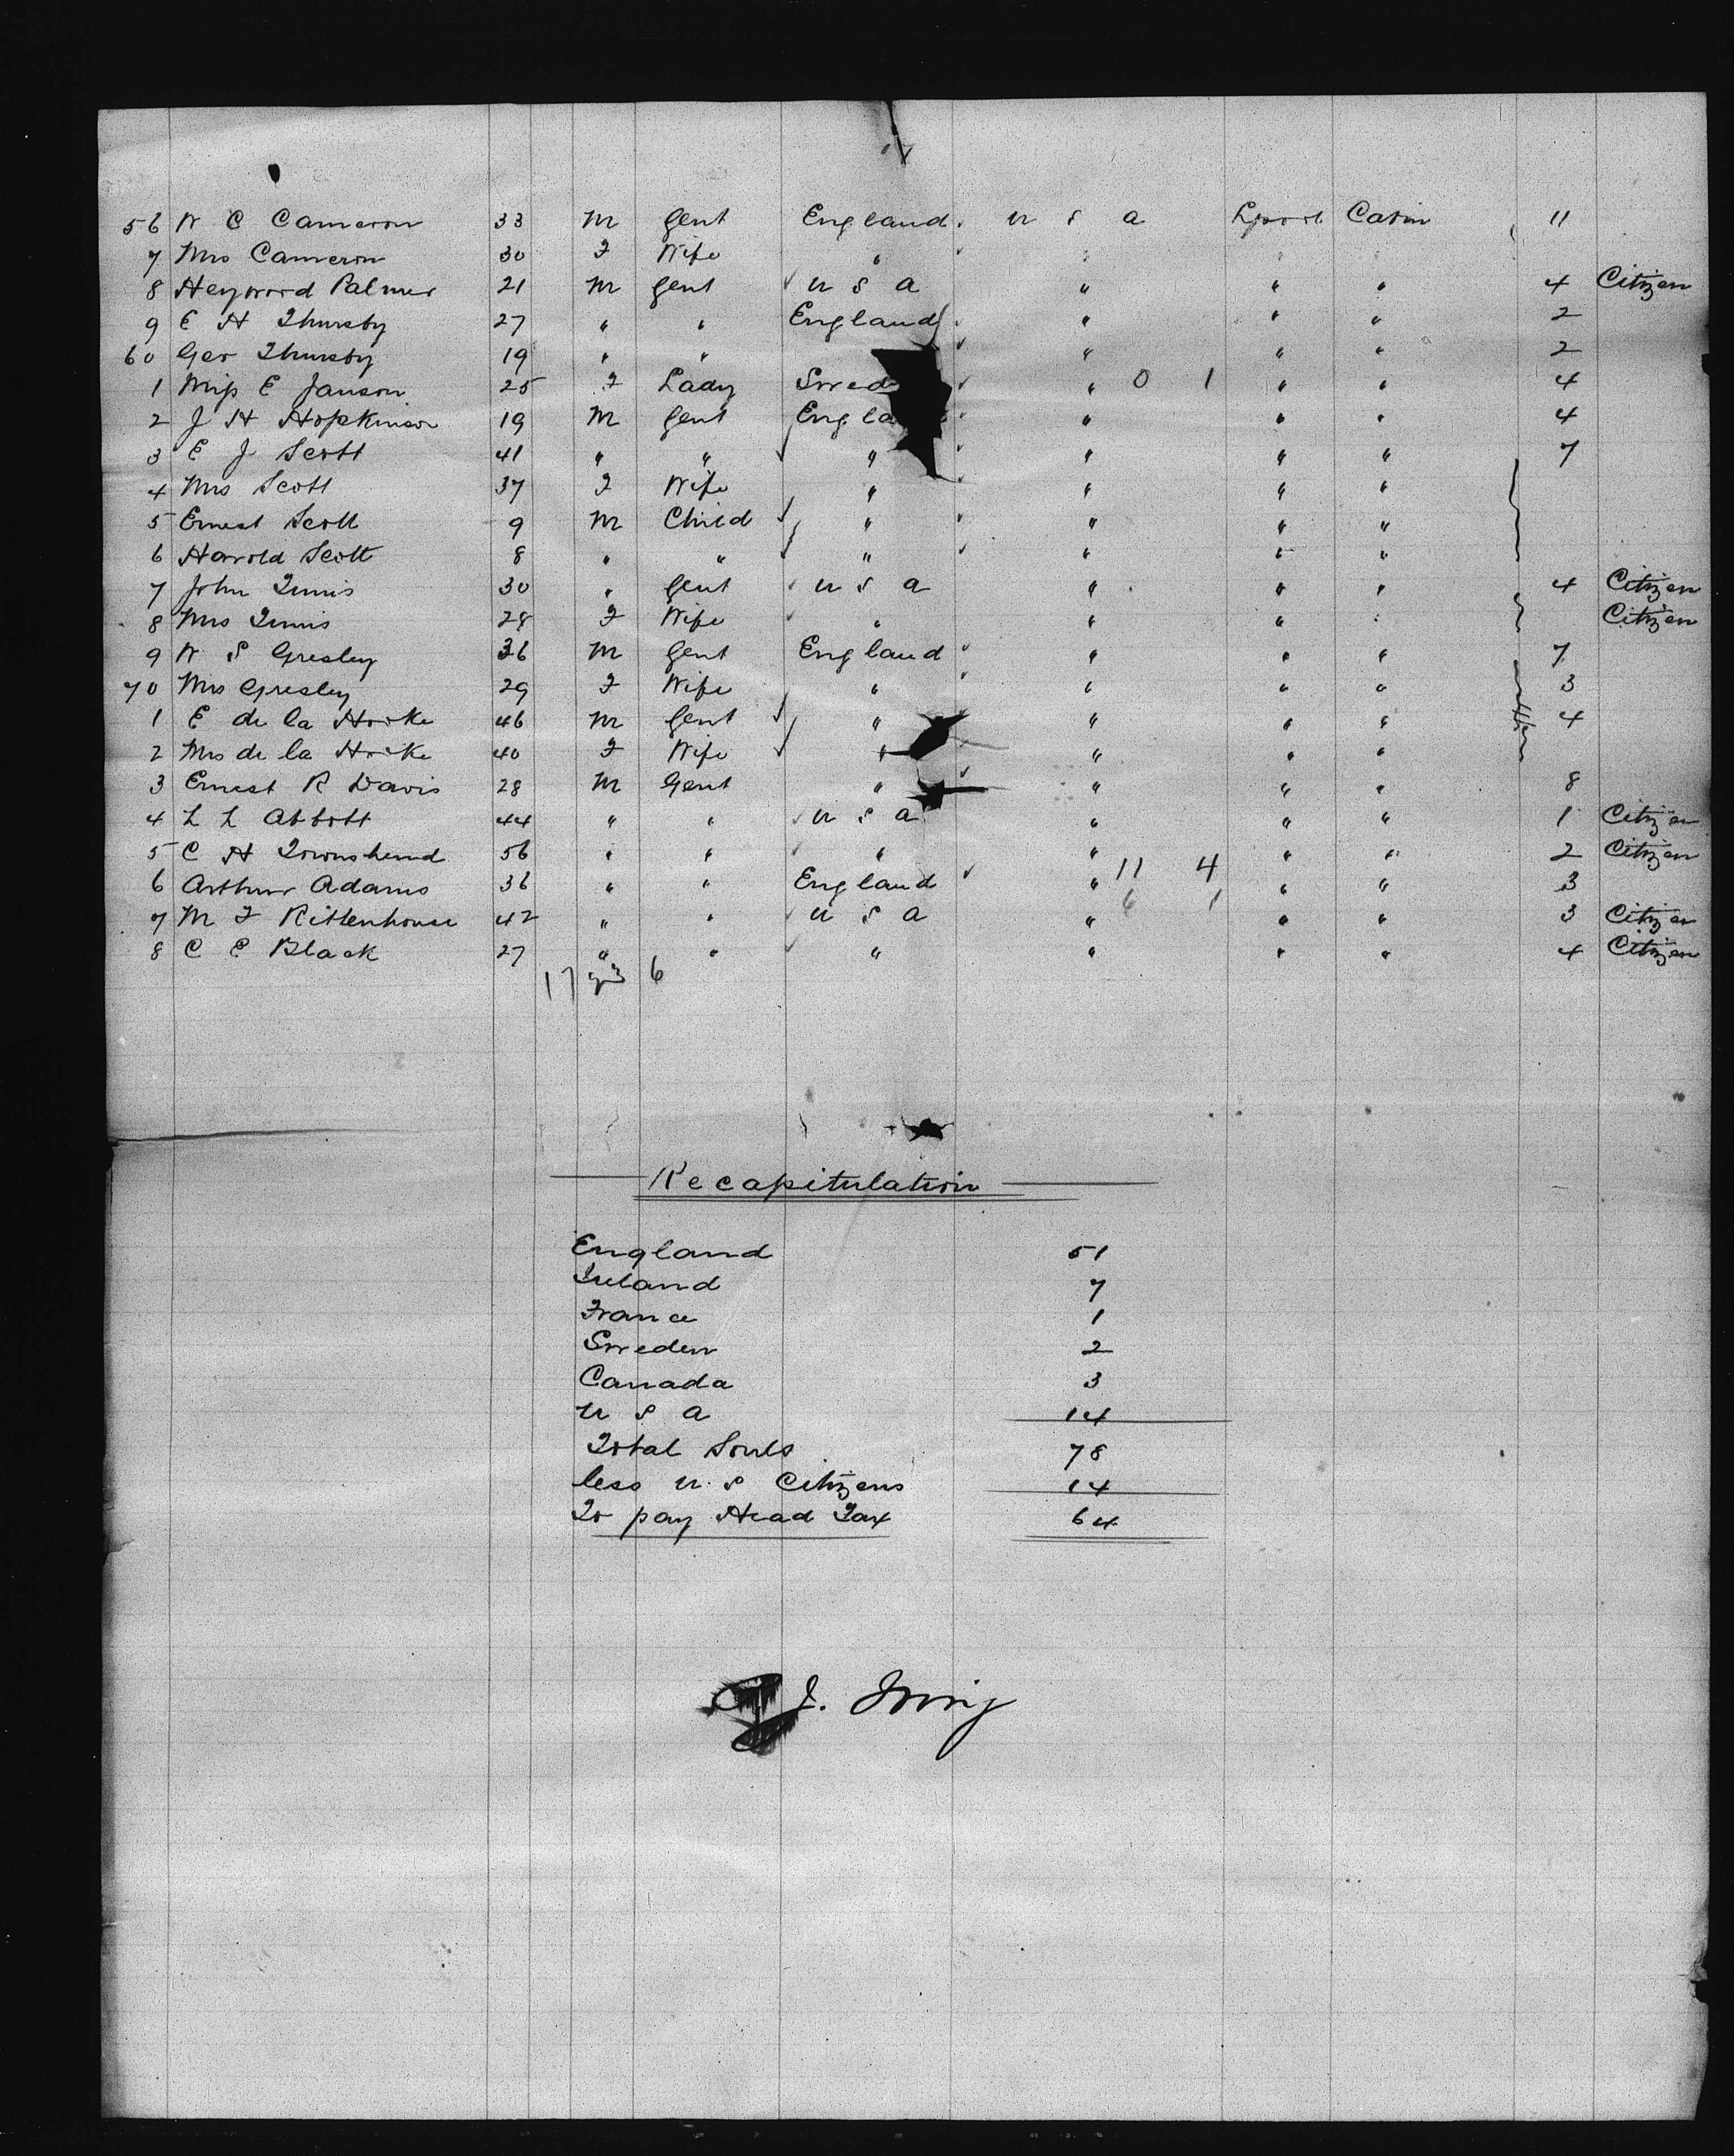 56 W C Cameron 33 M Gent England U S A Lpool Cabin 11
7 Mrs Cameron 30 F Wife "
8 Heyword Palmer 21 M Gent U S A " " " 4 Citizen
9 E H Thursby 27 " " England " " " 2
60 Geo Thursby 19 " " " " " 2
1 Miss E Janson 25 F Lady Swed " 0 1 " " 4
2 J H Hopkinson 19 M Gent Engla " " " 4
3 E J Scott 41 " " " " " " 7
4 Mrs Scott 37 F Wife " " " "
5 Ernest Scott 9 M Child " " " "
6 Harold Scott 8 " " " " " "
7 John Tunis 30 " Gent U S A " " " 4 Citizen
8 Mrs Tunis 28 F Wife " " " " Citizen
9 W S Gresley 36 M Gent England " " " 7
70 Mrs Gresley 29 F Wife " " " " 3
1 E de la Hooke 46 M Gent " " " " 4
2 Mrs de la Hooke 40 F Wife " " " "
3 Ernest R Davis 28 M Gent " " " " 8
4 L L Abbott 44 " " U S A " " " 1 Citizen
5 C H Townshend 56 " " " " " " 2 Citizen
6 Arthur Adams 36 " " England " 11 4 " " 3
7 M F Rittenhouse 42 " " U S A " 6 1 " " 3 Citizen
8 C E Black 27 " " " " " " 4 Citizen
17 6
Recapitulation
England 51
Ireland 7
France 1
Sweden 2
Canada 3
U S A 14
Total Souls 78
less U. S Citizens 14
To pay Head Tax 64
J. Irving